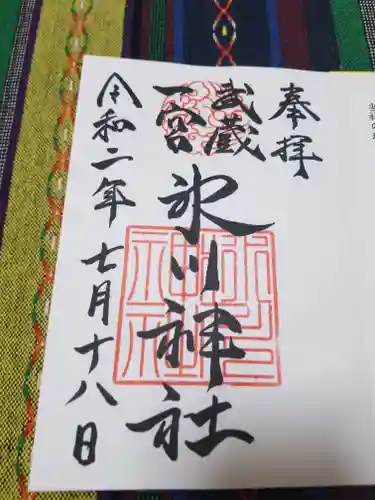 奉拝
武蔵
一宮
氷川神社
令和二年七月十八日
氷川神社